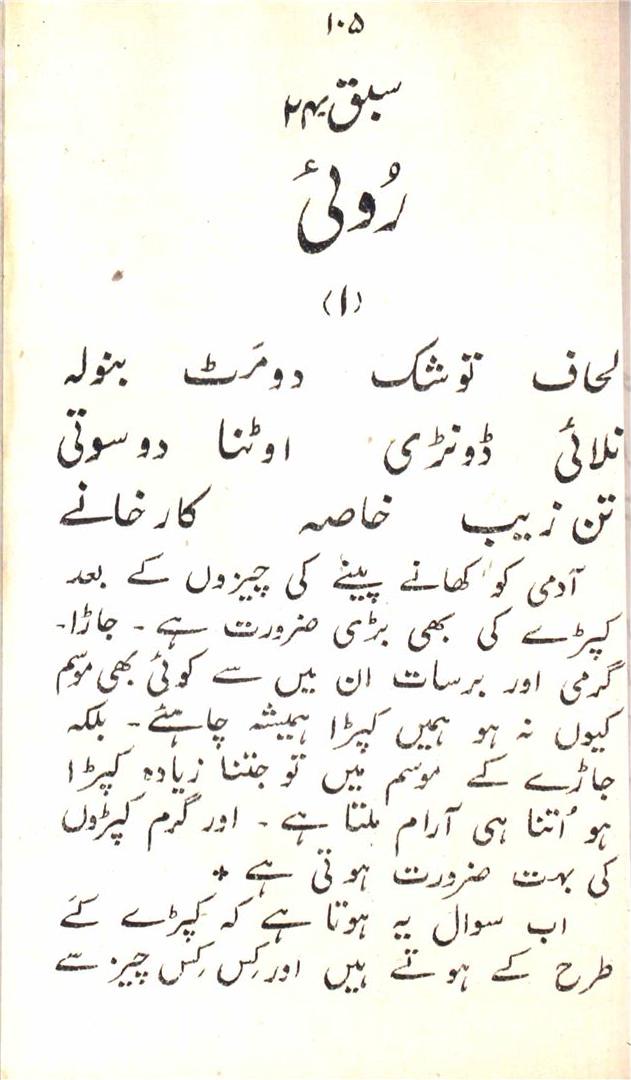 ۱۰۵
سبق ۲۴
رُوئی
(۱)
لحاف توشک دومَرٹ بنولہ
نلائی ڈونڑی اوٹنا دوسوتی
تن زیب خاصہ کارخانے
آدمی کو کھانے پینے کی چیزوں کے بعد
کپڑے کی بھی بڑی ضرورت ہے ۔ جاڑا۔
گرمی اور برسات ان میں سے کوئی بھی موسم
کیوں نہ ہو ہمیں کپڑا ہمیشہ چاہئے ۔ بلکہ
جاڑے کے موسم میں تو جتنا زیادہ کپڑا
ہو اُتنا ہی آرام ملتا ہے ۔ اور گرم کپڑوں
کی بہت ضرورت ہوتی ہے *
اب سوال یہ ہوتا ہے کہ کپڑے کَے
طرح کے ہوتے ہیں اور کِس کِس چیز سے